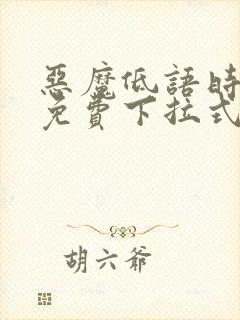 惡魔低語時
免費下拉式
胡六爺